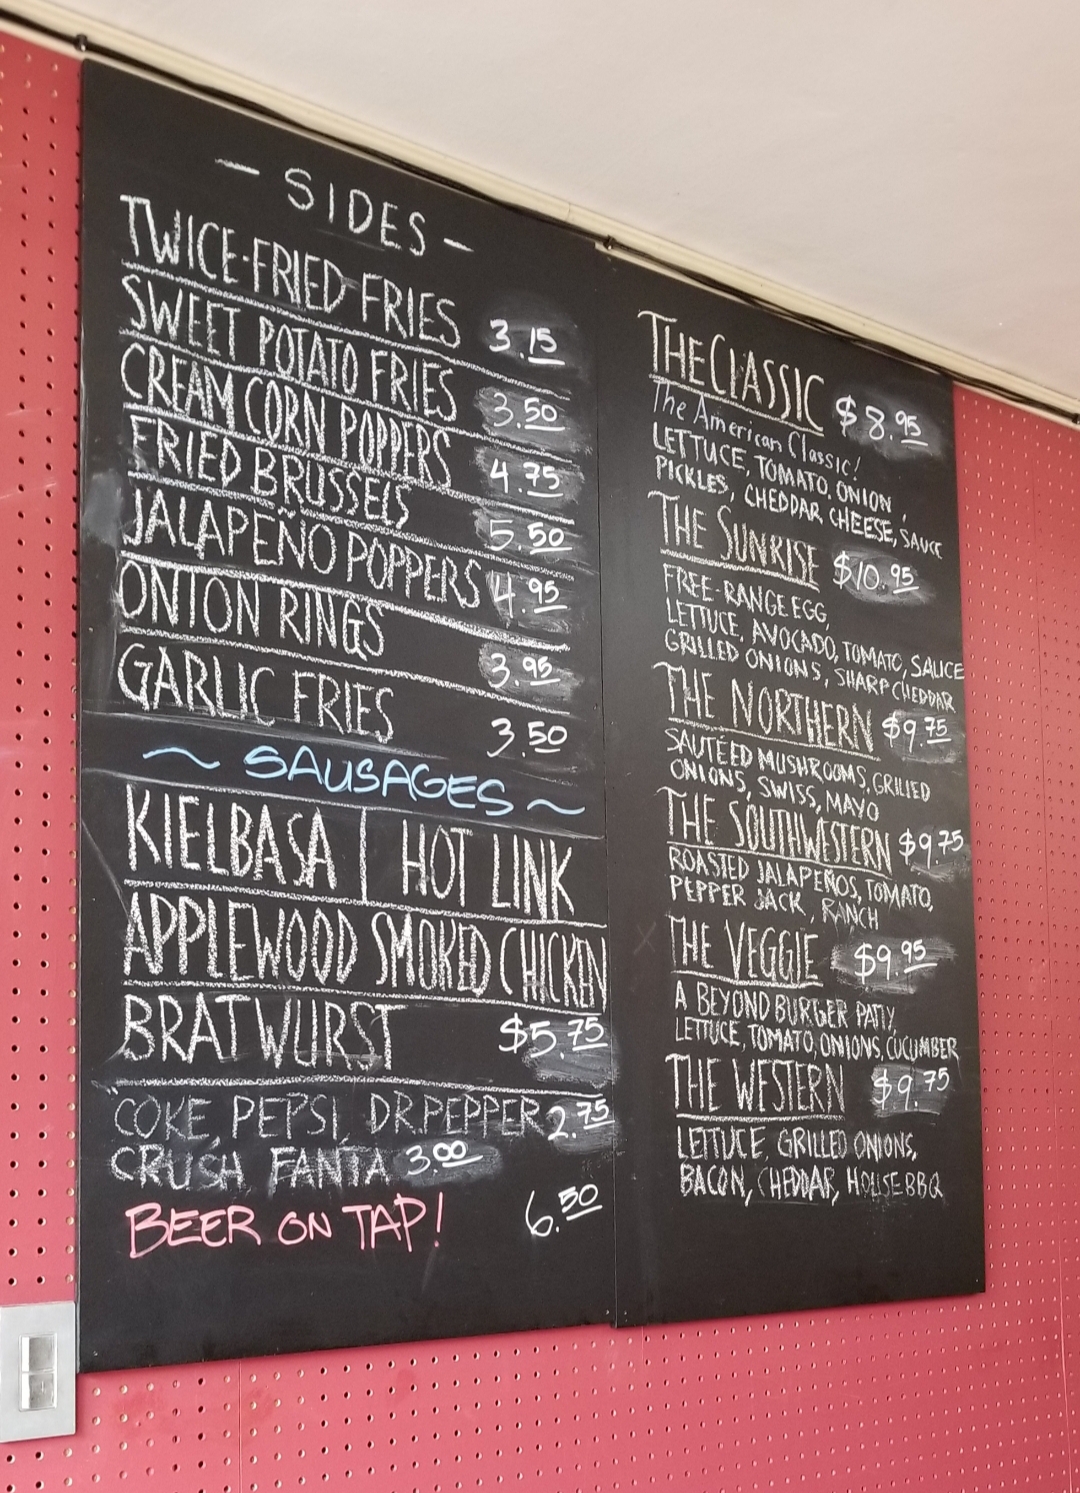 - SIDES -
TWICE-FRIED FRIES 3.15
SWEET POTATO FRIES 3.50
CREAM CORN POPPERS 4.75
FRIED BRUSSELS 5.50
JALAPEÑO POPPERS 4.95
ONION RINGS 3.95
GARLIC FRIES 3.50
~ SAUSAGES ~
KIELBASA | HOT LINK
APPLEWOOD SMOKED CHICKEN
BRATWURST $5.75
COKE, PEPSI, DR.PEPPER 2.75
CRUSH, FANTA 3.00
BEER ON TAP! 6.50
THE CLASSIC $8.95
The American Classic!
LETTUCE, TOMATO, ONION,
PICKLES, CHEDDAR CHEESE, SAUCE
THE SUNRISE $10.95
FREE-RANGE EGG,
LETTUCE, AVOCADO, TOMATO, SAUCE
GRILLED ONIONS, SHARP CHEDDAR
THE NORTHERN $9.75
SAUTÉED MUSHROOMS, GRILLED
ONIONS, SWISS, MAYO
THE SOUTHWESTERN $9.75
ROASTED JALAPEÑOS, TOMATO,
PEPPER JACK, RANCH
THE VEGGIE $9.95
A BEYOND BURGER PATTY,
LETTUCE, TOMATO, ONIONS, CUCUMBER
THE WESTERN $9.75
LETTUCE, GRILLED ONIONS,
BACON, CHEDDAR, HOUSE BBQ